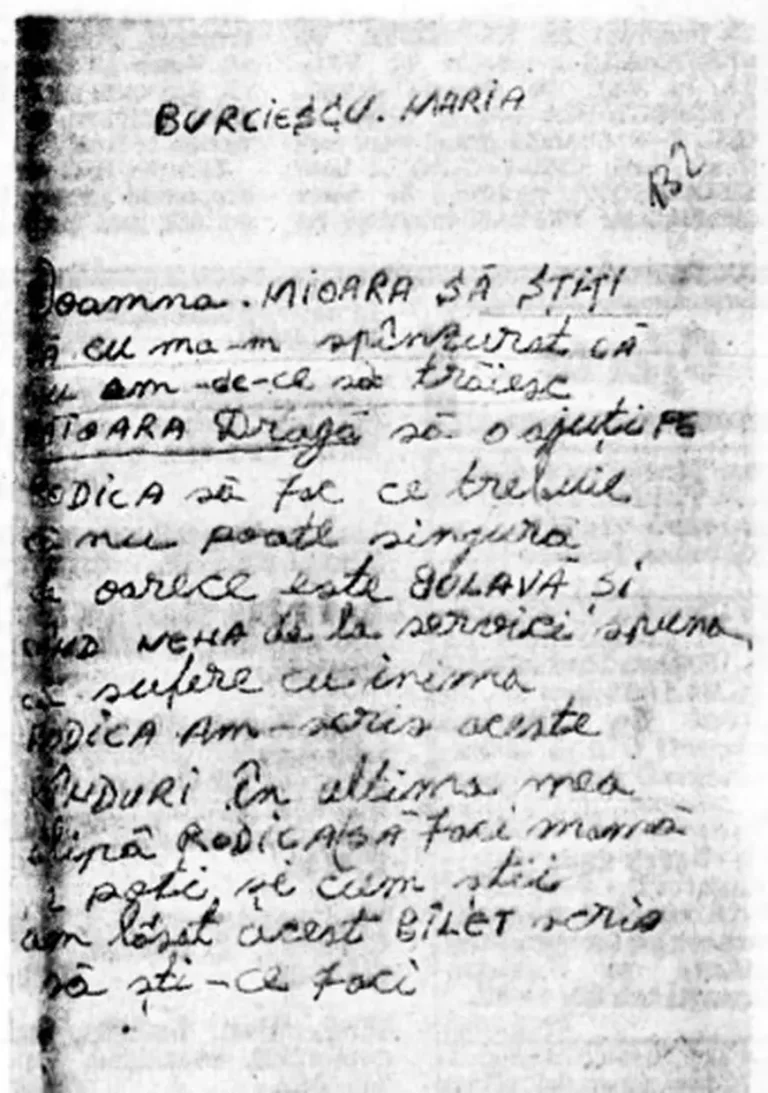 BURCIESCU. MARIA
132
Doamna. MIOARA SĂ ȘTIȚI
că eu ma-m spînzurat CĂ
nu am -de-ce să trăiesc
MIOARA Dragă să o ajuți PE
RODICA să fac ce trebuie
că nu poate singura
oarece este BOLAVĂ SI
CÎND de la servici spunea
că sufere cu inema
RODICA AM-scris aceste
RÎNDURI în ultima mea
clipă RODICA SĂ faci mamă
poti și cum știi
am lăsat acest BILET scris
să ști-ce faci